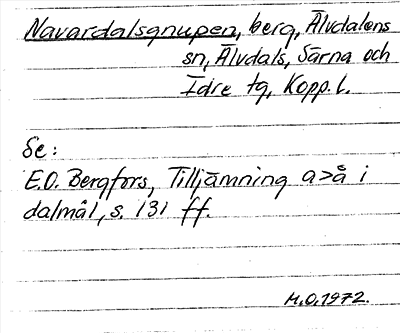 Navardalsgnupen, berg, Älvdalens
sn, Älvdals, Särna och
Idre tg, Kopp. l.
Se:
E.O. Bergfors, Tilljämning a>å i
dalmål, s. 131 ff.
M.O. 1972.